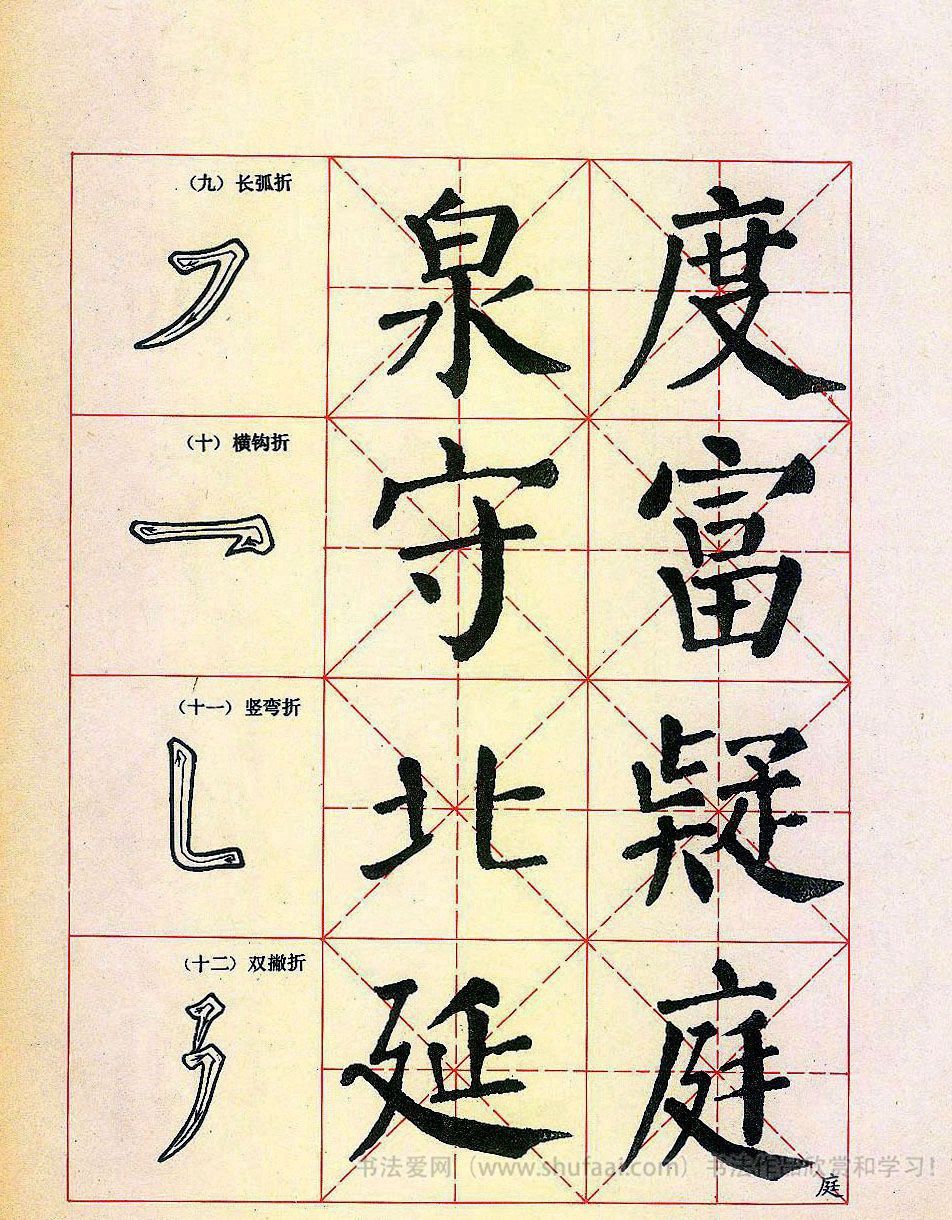 （九）长弧折
泉 度
（十）横钩折
守 富
（十一）竖弯折
北 疑
（十二）双撇折
延 庭
书法爱网（www.shufaai.com）书法作品欣赏和学习！
庭